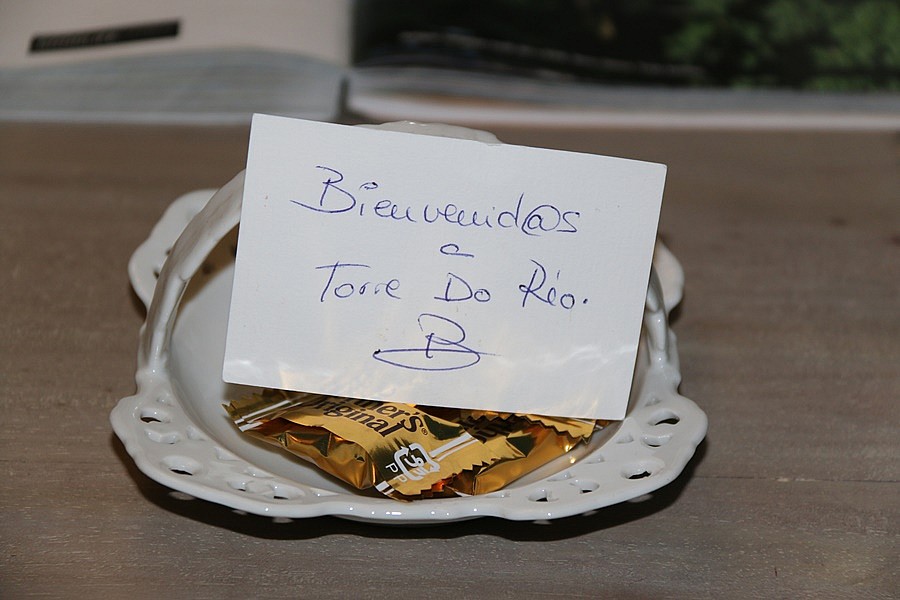 Bienvenid@s
a
Torre Do Río.
B
Original
PP